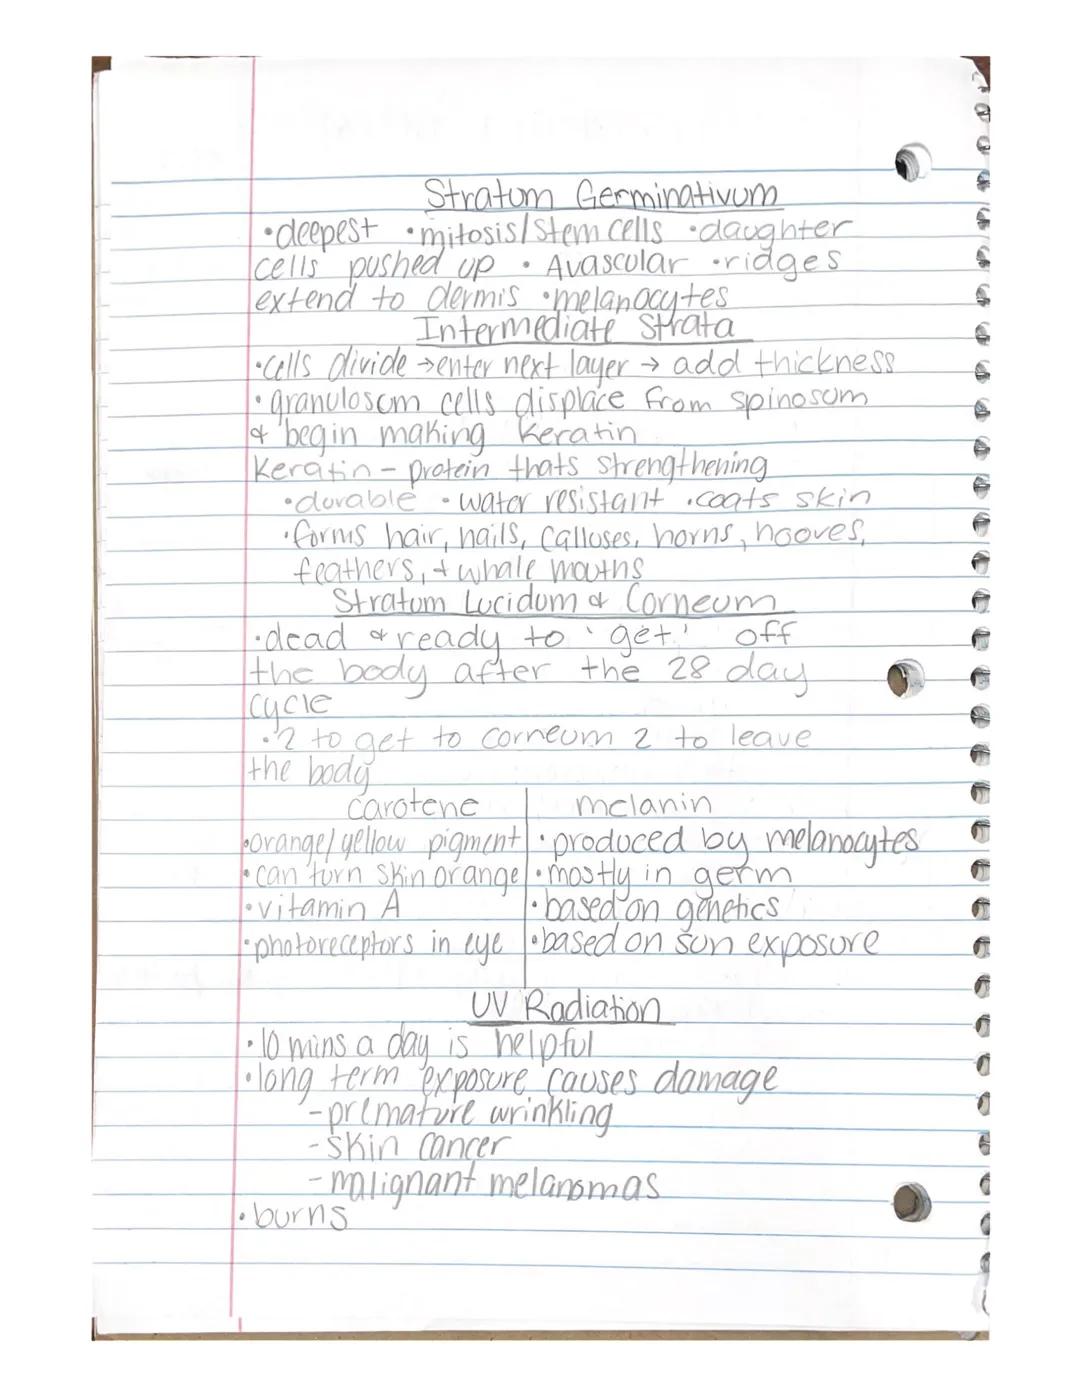 Stratum Germinativum
•deepest •mitosis/stem cells •daughter
cells pushed up • Avascular •ridges
extend to dermis •melanocytes
Intermediate Strata
•cells divide →enter next layer → add thickness
•granulosum cells displace from spinosum
& begin making Keratin
Keratin - protein thats strengthening
•durable •water resistant •coats skin
•forms hair, nails, calluses, horns, hooves,
feathers, + whale mouths
Stratum Lucidum & Corneum
•dead & ready to get off
the body after the 28 day
cycle
•2 to get to corneum 2 to leave
the body
carotene | melanin
•orange/yellow pigment | •produced by melanocytes
•can turn skin orange | •mostly in germ
•vitamin A | •based on genetics
•photoreceptors in eye | •based on sun exposure
UV Radiation
•10 mins a day is helpful
•long term exposure causes damage
-premature wrinkling
-skin cancer
-malignant melanomas
•burns